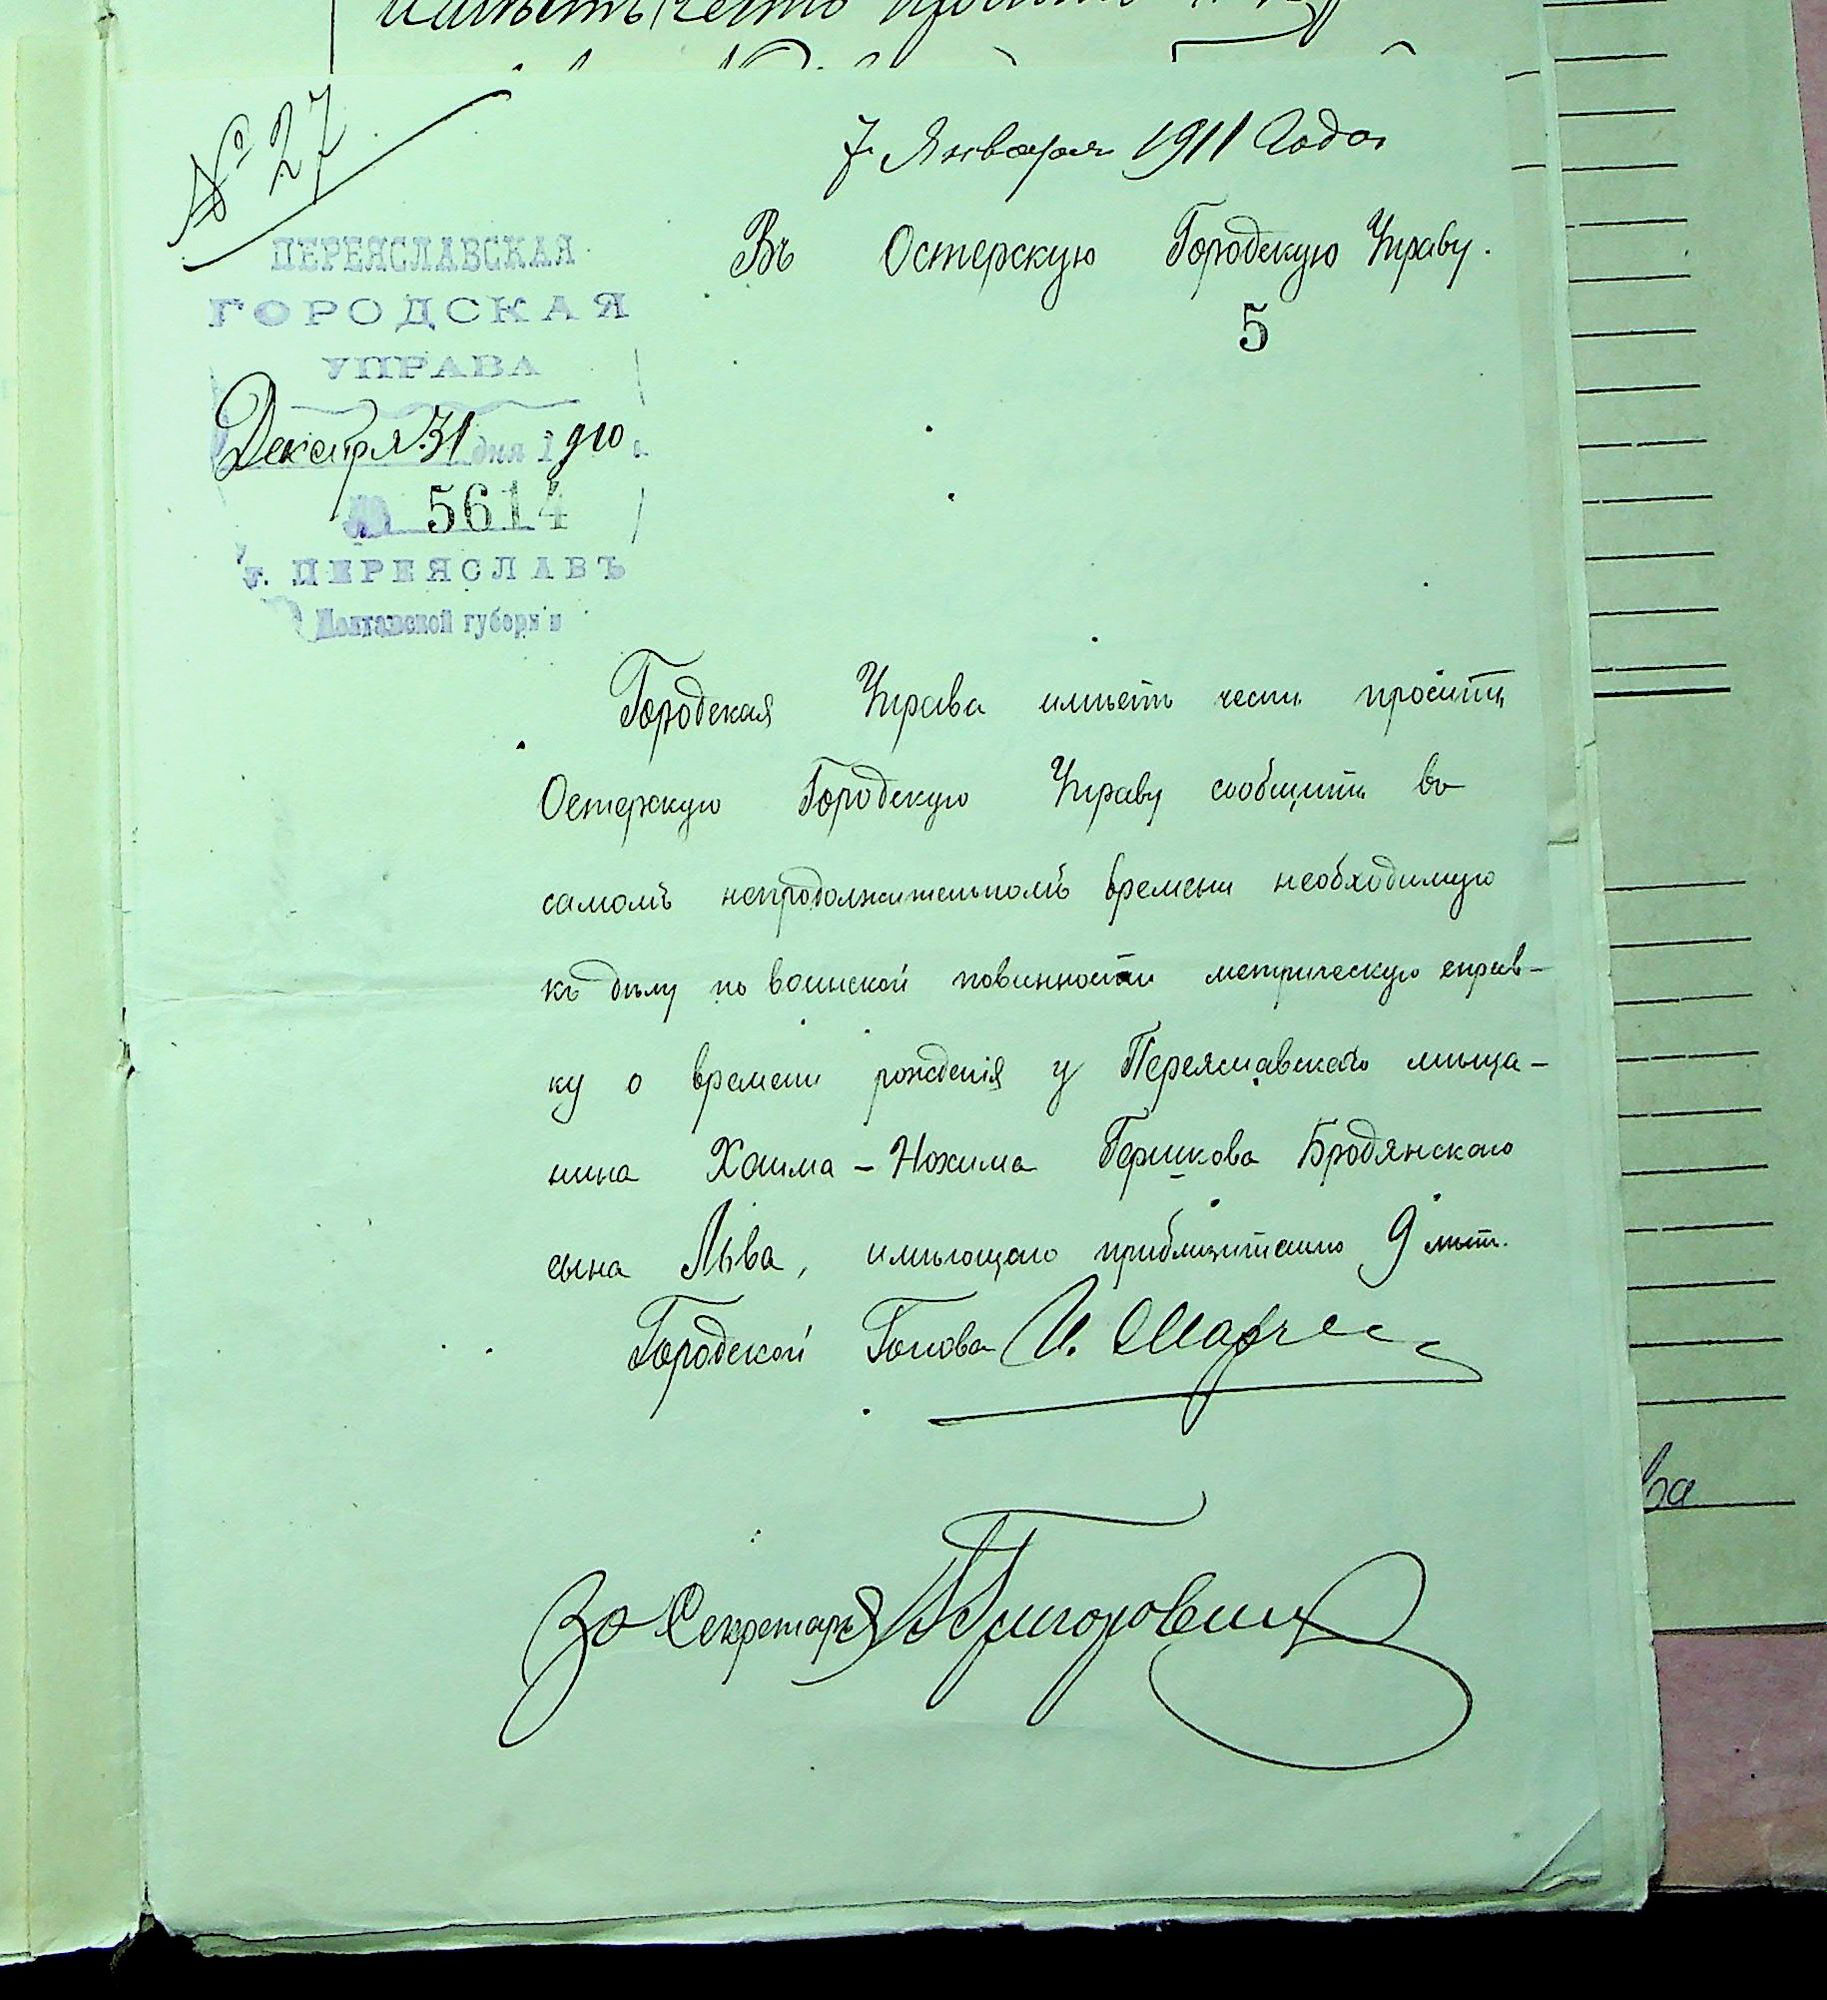 имѣетъ честь
№ 27
7 Января 1911 Года
ПЕРЕЯСЛАВСКАЯ
ГОРОДСКАЯ
УПРАВА
Декабря 31 дня 1910 г.
№ 5614
г. ПЕРЕЯСЛАВЪ
Полтавской губерніи
Въ Остерскую Городскую Управу.
5
Городская Управа имѣетъ честь просить
Остерскую Городскую Управу сообщить въ
самомъ непродолжительномъ времени необходимую
къ дѣлу по воинской повинности метрическую справ-
ку о времени рожденія у Переяславскаго мѣща-
нина Хаима-Нохима Гершкова Бродянскаго
сына Льва, имѣющаго приблизительно 9 лѣтъ.
Городской Голова И.
За Секретаря Григоровичъ
ва